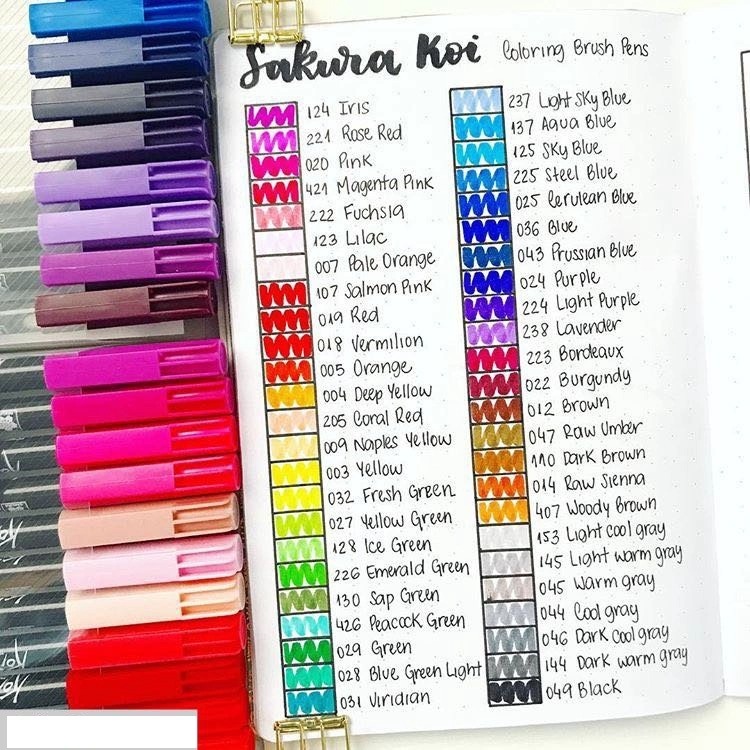 Sakura Koi Coloring Brush Pens
124 Iris
221 Rose Red
020 Pink
421 Magenta Pink
222 Fuchsia
123 Lilac
007 Pale Orange
107 Salmon Pink
019 Red
018 Vermilion
005 Orange
004 Deep Yellow
205 Coral Red
009 Naples Yellow
003 Yellow
032 Fresh Green
027 Yellow Green
128 Ice Green
226 Emerald Green
130 Sap Green
426 Peacock Green
029 Green
028 Blue Green Light
031 Viridian
237 Light Sky Blue
137 Aqua Blue
125 Sky Blue
225 Steel Blue
025 Cerulean Blue
036 Blue
043 Prussian Blue
024 Purple
224 Light Purple
238 Lavender
223 Bordeaux
022 Burgundy
012 Brown
047 Raw Umber
110 Dark Brown
014 Raw Sienna
407 Woody Brown
153 Light cool gray
145 Light warm gray
045 Warm gray
044 Cool gray
046 Dark Cool gray
144 Dark warm gray
049 Black